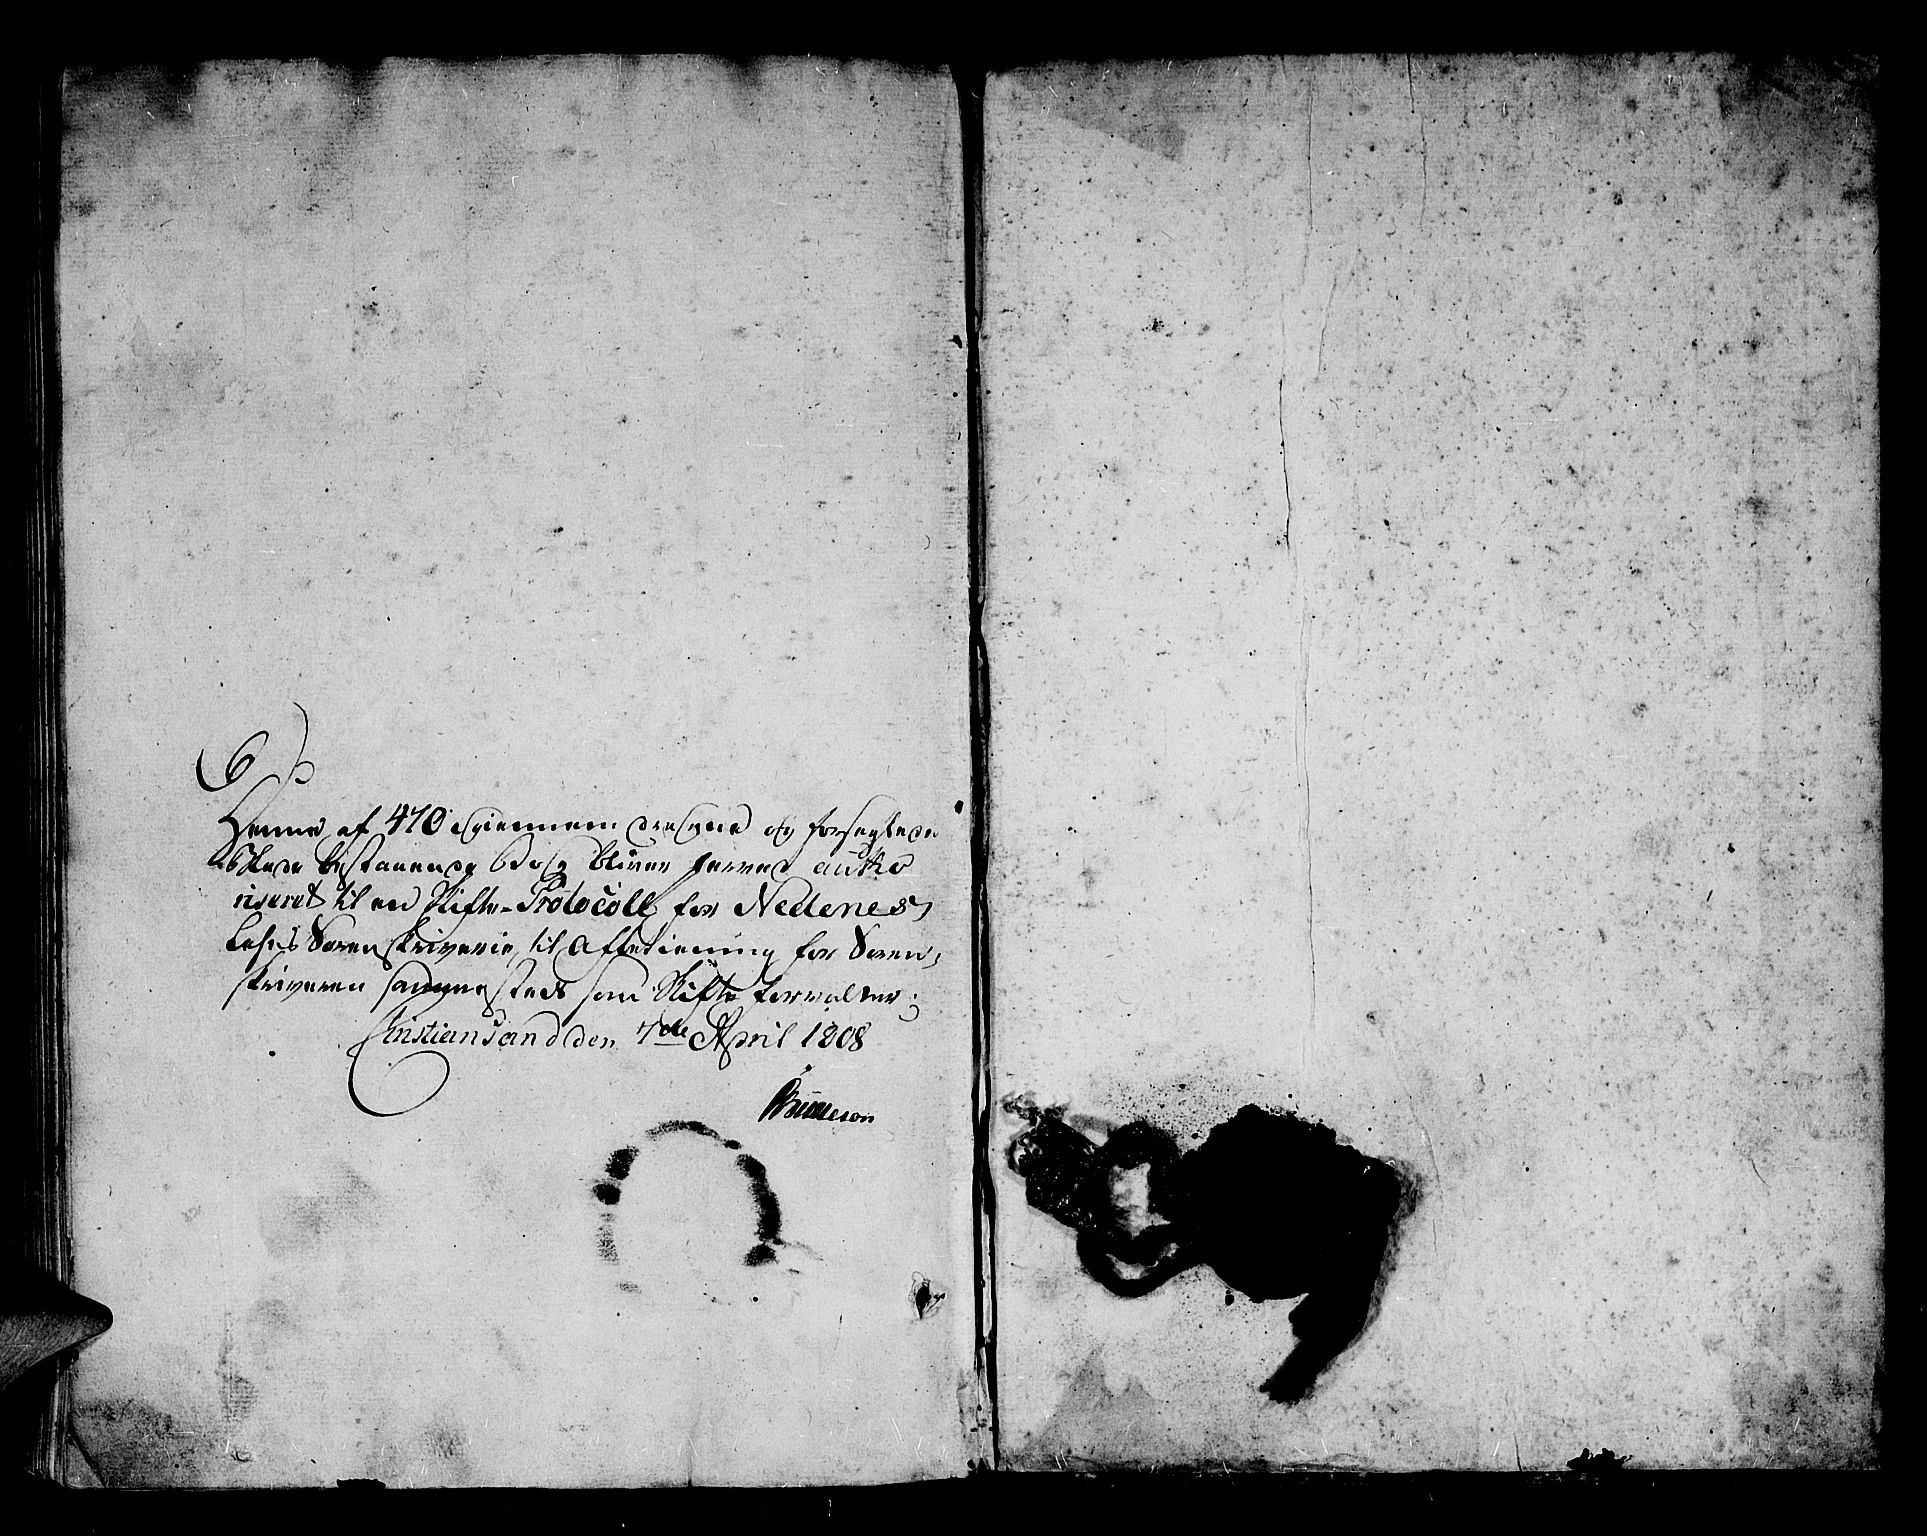 Denne af 470 igiennem dragne og forseglede
Blade bestaaende Bog bliver herved autho
riseret til en Skifte-Protocoll for Nedenes
Lehns Sorenskriverie, til Afbetiening for Soren,
skriveren sammesteds som Skifte forvalter.
Christiansand den 7de April 1808